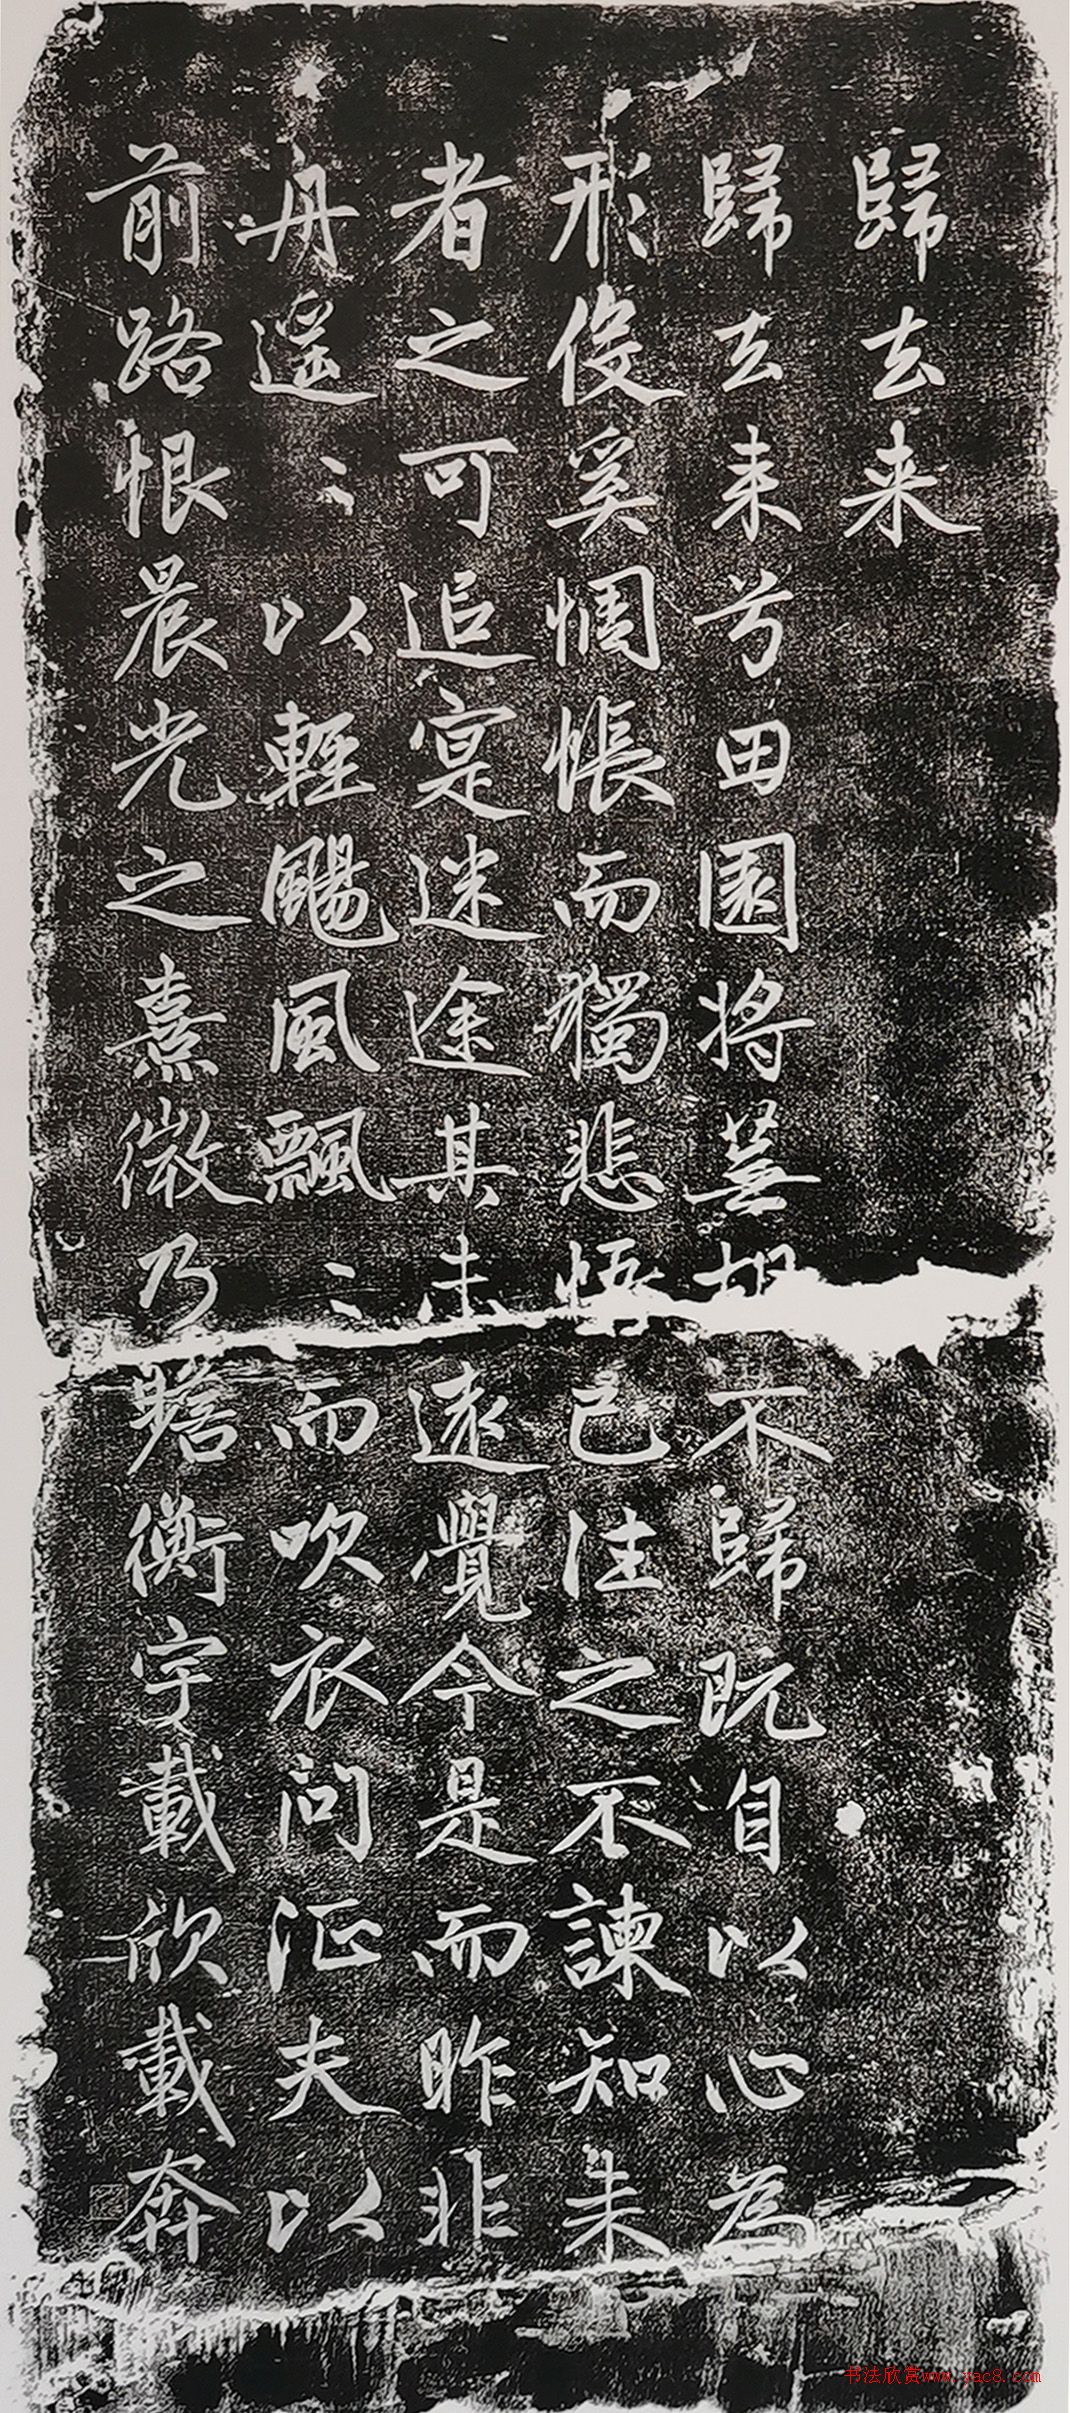 歸去来
歸去来兮田園将蕪胡不歸既自以心為
形役奚惆悵而獨悲悟已往之不諫知来
者之可追寔迷途其未遠覺今是而昨非
舟遥〻以輕颺風飄〻而吹衣問征夫以
前路恨晨光之熹微乃瞻衡宇載欣載奔
书法欣赏www.yac8.com